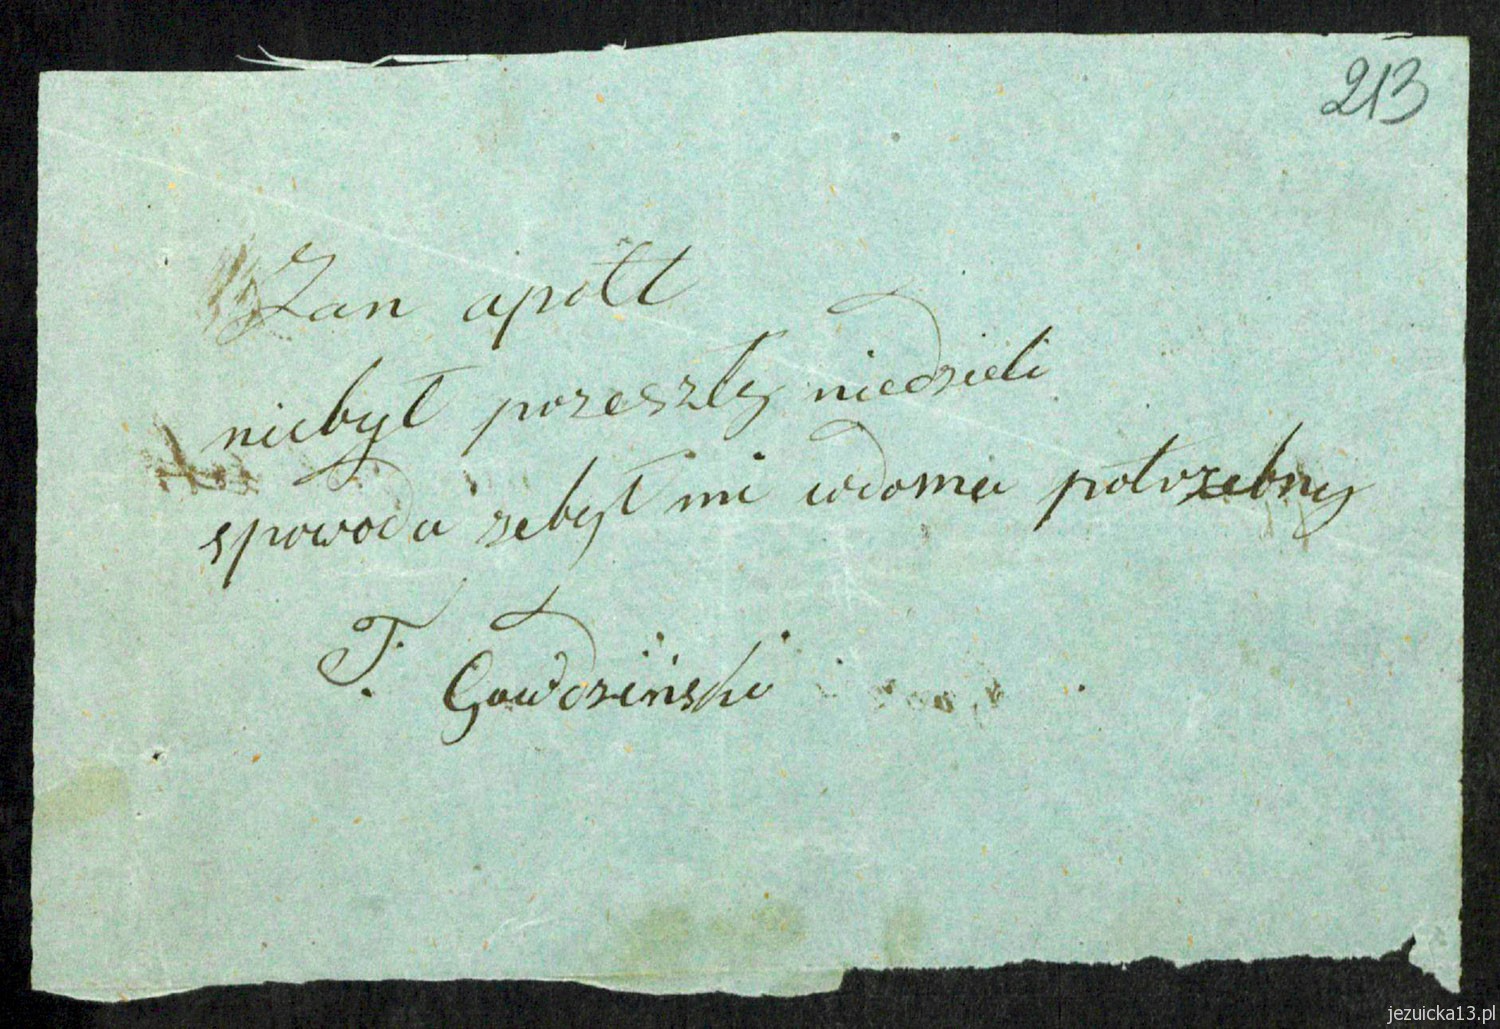 213
Jan apolt
niebył przeszły niedzieli
spowodu zebył mi wdomu potrzebny
F. Gawdzinski
jezuicka13.pl